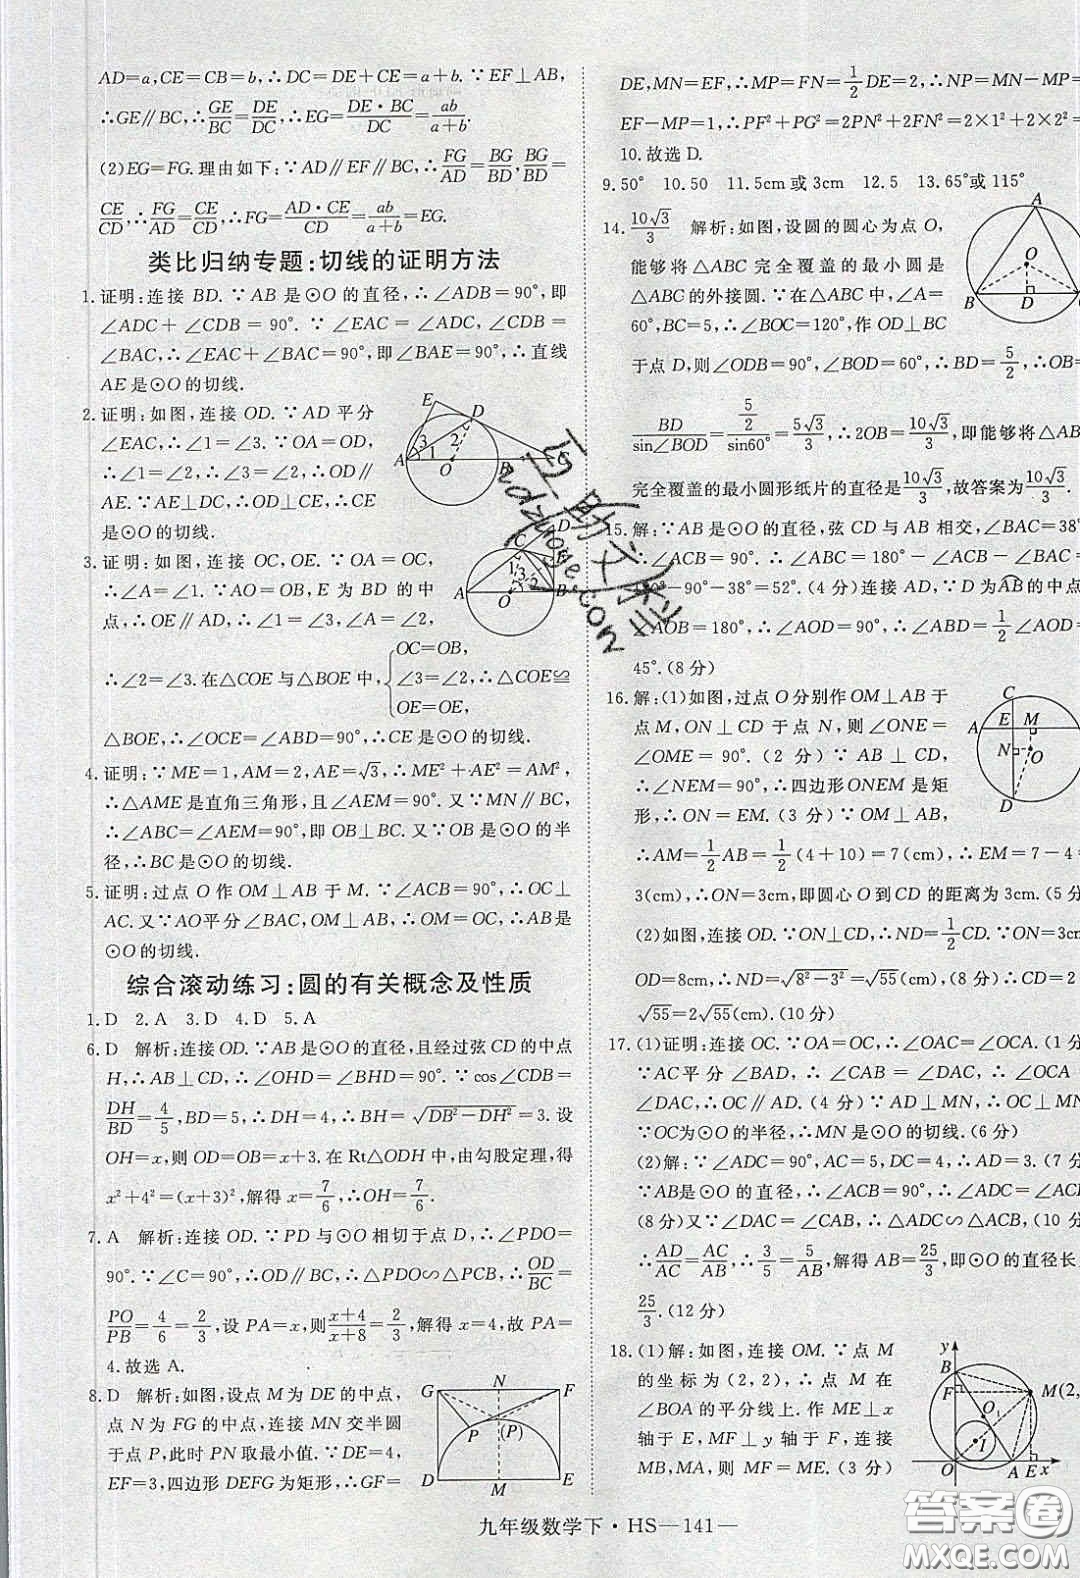 AD=a,CE=CB=b,∴DC=DE+CE=a+b.∵EF⊥AB,
∴GE∥BC,∴GE/BC=DE/DC,∴EG=DE·BC/DC=ab/a+b.
(2)EG=FG.理由如下:∵AD∥EF∥BC,∴FG/AD=BG/BD,BG/BD=
CE/CD,∴FG/AD=CE/CD,∴FG=AD·CE/CD=ab/a+b=EG.
类比归纳专题:切线的证明方法
1.证明:连接 BD.∵AB 是⊙O 的直径,∴∠ADB=90°,即
∠ADC+∠CDB=90°.∵∠EAC=∠ADC,∠CDB=
∠BAC,∴∠EAC+∠BAC=90°,即∠BAE=90°,∴直线
AE 是⊙O 的切线.
2.证明:如图,连接 OD.∵AD 平分
∠EAC,∴∠1=∠3.∵OA=OD,
∴∠1=∠2,∴∠3=∠2,∴OD∥
AE.∵AE⊥DC,∴OD⊥CE,∴CE
是⊙O 的切线.
E D 3 2 1 A O B C
3.证明:连接 OC,OE.∵OA=OC,
∴∠A=∠1.∵AO=OB,E 为 BD 的中
点,∴OE∥AD,∴∠1=∠3,∠A=∠2,
∴∠2=∠3.在△COE 与△BOE 中,{OC=OB,
∠3=∠2,∴△COE≌
OE=OE,
△BOE,∴∠OCE=∠ABD=90°,∴CE 是⊙O 的切线.
4.证明:∵ME=1,AM=2,AE=√3,∴ME²+AE²=AM²,
∴△AME是直角三角形,且∠AEM=90°.又∵MN∥BC,
∴∠ABC=∠AEM=90°,即 OB⊥BC.又∵OB 是⊙O 的半
径,∴BC 是⊙O 的切线.
5.证明:过点 O 作 OM⊥AB 于 M.∵∠ACB=90°,∴OC⊥
AC.又∵AO平分∠BAC,OM⊥AB,∴OM=OC,∴AB是
⊙O 的切线.
综合滚动练习:圆的有关概念及性质
1.D 2.A 3.D 4.D 5.A
6.D 解析:连接OD.∵AB是⊙O的直径,且经过弦 CD 的中点
H,∴AB⊥CD,∴∠OHD=∠BHD=90°.∵cos∠CDB=
DH/BD=4/5,BD=5,∴DH=4,∴BH=√DB²−DH²=3.设
OH=x,则 OD=OB=x+3.在 Rt△ODH 中,由勾股定理,得
x²+4²=(x+3)²,解得 x=7/6,∴OH=7/6.
7.A 解析:连接 OD.∵PD 与⊙O 相切于点 D,∴∠PDO=
90°.∵∠C=90°,∴OD∥BC,∴△PDO∽△PCB,∴OD/BC=
PO/PB=4/6=2/3,设 PA=x,则x+4/x+8=2/3,解得 x=4,故 PA=
4.故选 A.
8.D 解析:如图,设点 M 为 DE 的中点,
点 N 为 FG 的中点,连接 MN 交半圆
于点 P,此时 PN 取最小值.∵DE=4,
EF=3,四边形 DEFG 为矩形,∴GF=
G N F P (P) D M E
DE,MN=EF,∴MP=FN=1/2DE=2,∴NP=MN−MP=
EF−MP=1,∴PF²+PG²=2PN²+2FN²=2×1²+2×2²=
10.故选 D.
9.50° 10.50 11.5cm或3cm 12.5 13.65°或115°
14.10√3/3 解析:如图,设圆的圆心为点 O,
能够将△ABC 完全覆盖的最小圆是
△ABC 的外接圆.∵在△ABC 中,∠A=
60°,BC=5,∴∠BOC=120°,作 OD⊥BC
于点 D,则∠ODB=90°,∠BOD=60°,∴BD=5/2,∴OB=
A O B D
BD/sin∠BOD=5/2/sin60°=5√3/3,∴2OB=10√3/3,即能够将△ABC
完全覆盖的最小圆形纸片的直径是10√3/3,故答案为10√3/3.
15.解:∵AB 是⊙O 的直径,弦 CD 与 AB 相交,∠BAC=38°
∴∠ACB=90°.∴∠ABC=180°−∠ACB−∠BAC=
−90°−38°=52°.(4 分)连接AD,∵D 为AB的中点,
∠AOB=180°,∴∠AOD=90°,∴∠ABD=1/2∠AOD=
45°.(8 分)
16.解:(1)如图,过点 O 分别作 OM⊥AB 于
点 M,ON⊥CD 于点 N,则∠ONE=
∠OME=90°.(2 分)∵AB⊥CD,
∴∠NEM=90°,∴四边形 ONEM 是矩
形,∴ON=EM.(3 分)∵OM⊥AB,
∴AM=1/2AB=1/2(4+10)=7(cm),∴EM=7−4=
C A E M N O D
3(cm),∴ON=3cm,即圆心 O 到 CD 的距离为 3cm.(5分)
(2)如图,连接 OD.∵ON⊥CD,∴ND=1/2CD.∵ON=3cm,
OD=8cm,∴ND=√8²−3²=√55(cm),∴CD=2
√55=2√55(cm).(10 分)
17.(1)证明:连接 OC.∵OA=OC,∴∠OAC=∠OCA.(1分)
∵AC平分∠BAD,∴∠CAB=∠DAC,∴∠DAC=∠OCA.
∴OC∥AD.(4 分)∵AD⊥MN,∴OC⊥MN.
∵OC为⊙O 的半径,∴MN 是⊙O 的切线.(6 分)
(2)解:∵∠ADC=90°,AC=5,DC=4,∴AD=3.(7分)
∵AB是⊙O 的直径,∴∠ACB=90°,∴∠ADC=∠ACB.
(8 分)又∵∠DAC=∠CAB,∴△ADC∽△ACB,(10分)
∴AD/AC=AC/AB,∴3/5=5/AB,解得 AB=25/3,即⊙O 的直径长
25/3.(12 分)
18.(1)解:如图,连接 OM.∵点 M
的坐标为(2,2),∴点 M 在
∠BOA 的平分线上.作 ME⊥x
轴于 E,MF⊥y 轴于 F,连接
MB,MA,则 MF=ME.(3 分)
y B F M(2, O₁ I O A E x
九年级数学下·HS—141—
互助文库
hdzuoye.com
答案圈
MXQE.COM